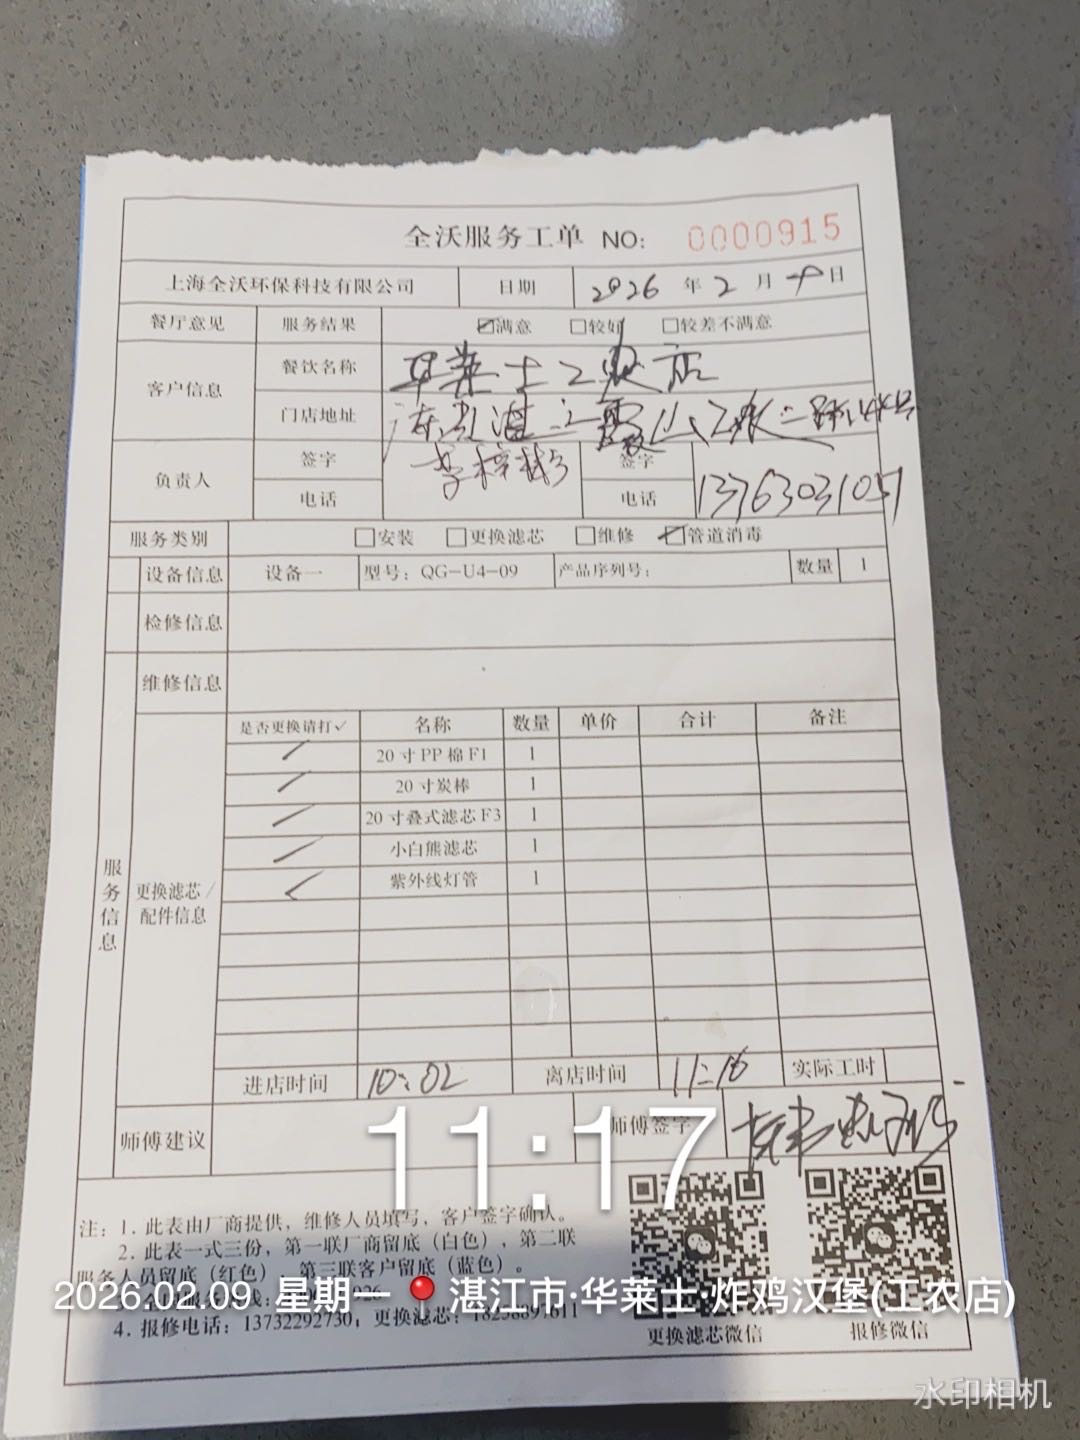 全沃服务工单 NO: 0000915
上海全沃环保科技有限公司 日期 2026 年 2 月 9 日
餐厅意见 服务结果 ☑满意 □较好 □较差不满意
客户信息 餐饮名称 华莱士工农店
门店地址 广东省湛江霞山工农二路
负责人 签字 签字
电话 电话 13763031057
服务类别 □安装 □更换滤芯 □维修 ☑管道消毒
设备信息 设备一 型号：QG-U4-09 产品序列号： 数量 1
检修信息
维修信息
服务信息
更换滤芯/配件信息
是否更换请打✓ 名称 数量 单价 合计 备注
✓ 20寸PP棉F1 1
✓ 20寸炭棒 1
✓ 20寸叠式滤芯F3 1
✓ 小白熊滤芯 1
✓ 紫外线灯管 1
进店时间 10:02 离店时间 11:16 实际工时
师傅建议 师傅签字
11:17
注：1. 此表由厂商提供，维修人员填写，客户签字确认。
2. 此表一式三份，第一联厂商留底（白色），第二联
服务人员留底（红色），第三联客户留底（蓝色）。
2026.02.09 星期一 湛江市·华莱士·炸鸡汉堡(工农店)
4. 报修电话：13732292730，更换滤芯：
更换滤芯微信 报修微信
水印相机